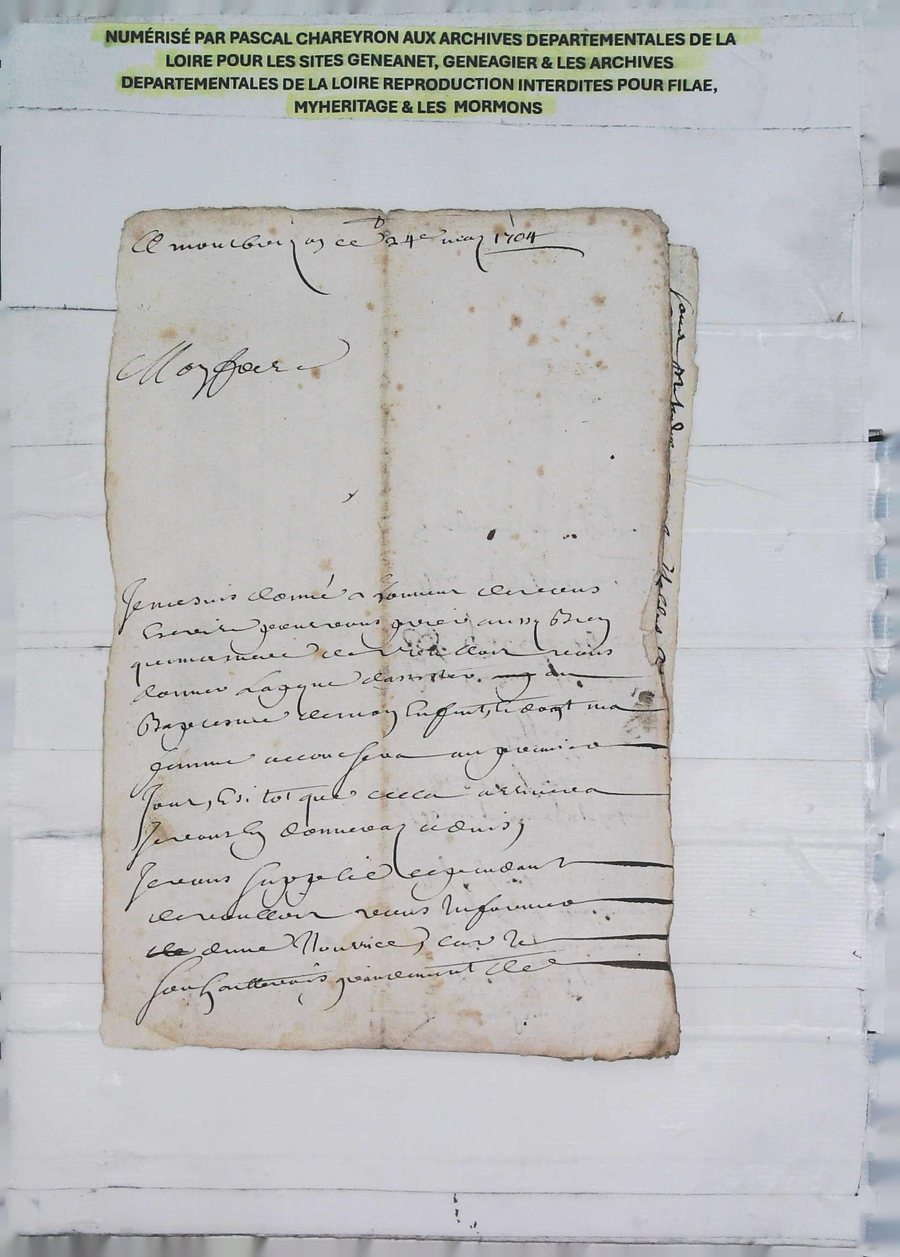 NUMÉRISÉ PAR PASCAL CHAREYRON AUX ARCHIVES DEPARTEMENTALES DE LA
LOIRE POUR LES SITES GENEANET, GENEAGIER & LES ARCHIVES
DEPARTEMENTALES DE LA LOIRE REPRODUCTION INTERDITES POUR FILAE,
MYHERITAGE & LES MORMONS
montbrison ce 24e may 1704
Monsieur
Je me suis donné l'honneur de vous
Escrire pour vous prier aussy Bien
que de vouloir vous
donner La peyne d'assister au
Baptesme de mon Enfant, dont ma
femme accouchera au premier
Jour, Esi tot que cela arrivera
Je vous En donneray advis,
Je vous supplie cependant
de voulloir vous Informer
dune Nourrice, car Je
souhaitterois grandement de